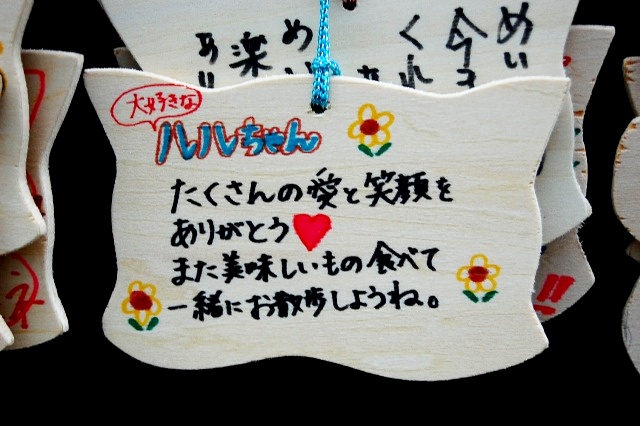 大好きな
ルルちゃん
たくさんの愛と笑顔を
ありがとう
また美味しいもの食べて
一緒にお散歩しようね。
めい
くれ
めい
楽
あり
!!